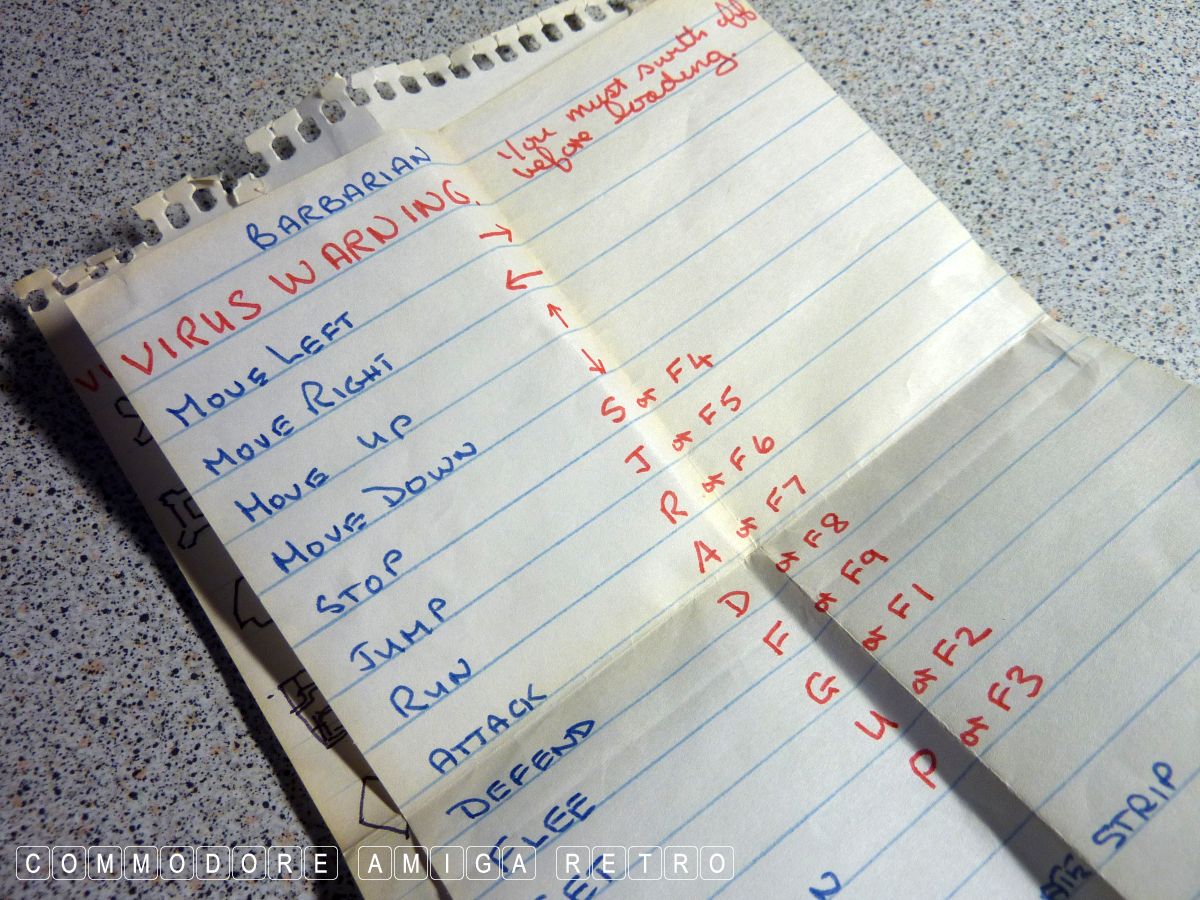 BARBARIAN
VIRUS WARNING. You must swith off
before loading.
MOVE LEFT →
MOVE RIGHT ←
MOVE UP ↑
MOVE DOWN ↓
STOP S or F4
JUMP J or F5
RUN R or F6
ATTACK A or F7
DEFEND D or F8
FLEE F or F9
GET G or F1
U or F2
P or F3
STRIP
COMMODORE AMIGA RETRO